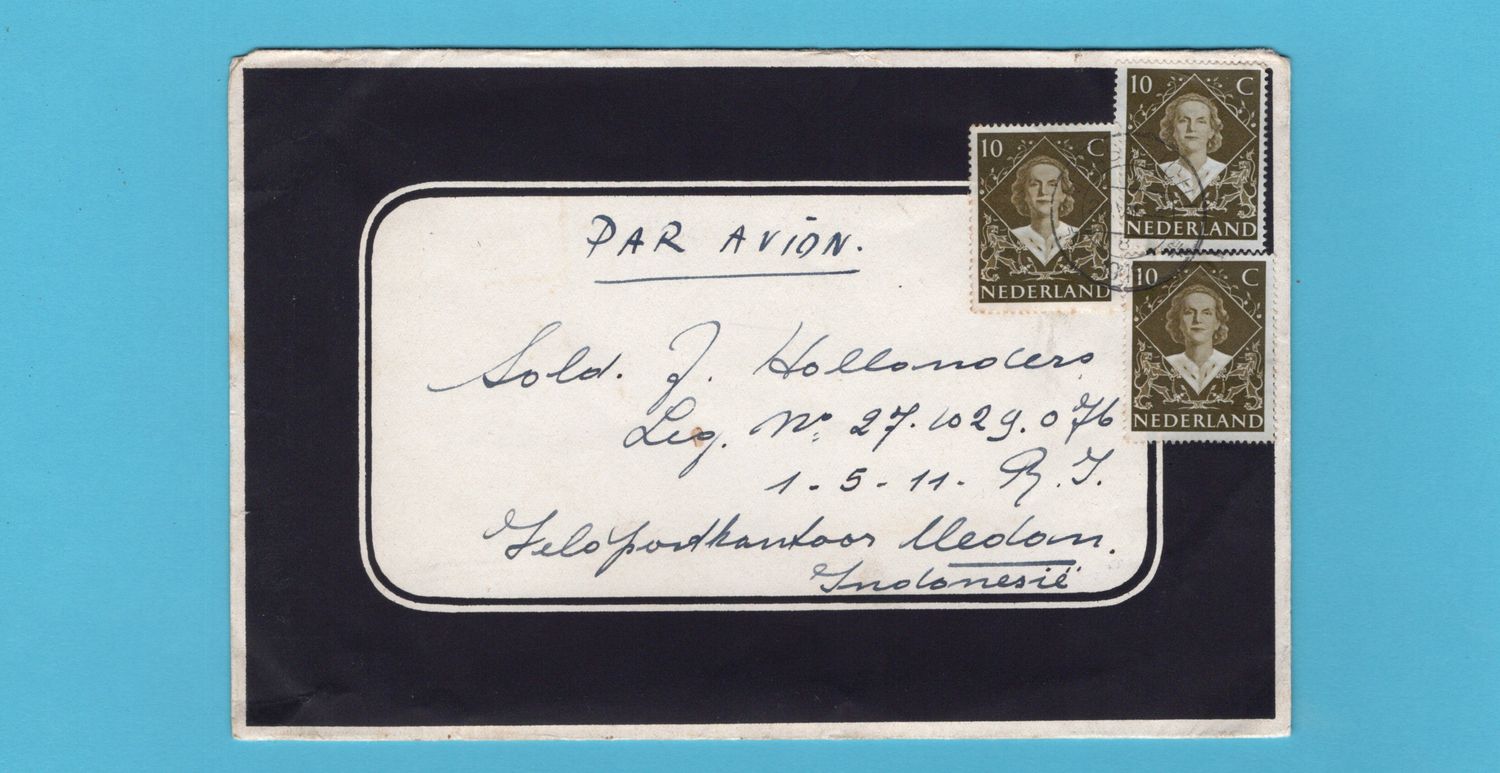 10 C
NEDERLAND
10 C
NEDERLAND
10 C
NEDERLAND
PAR AVION.
Sold. J. Hollanders
Leg. Nº 27.1029.076
1-5-11- R.I.
Veldpostkantoor Medan.
Indonesië